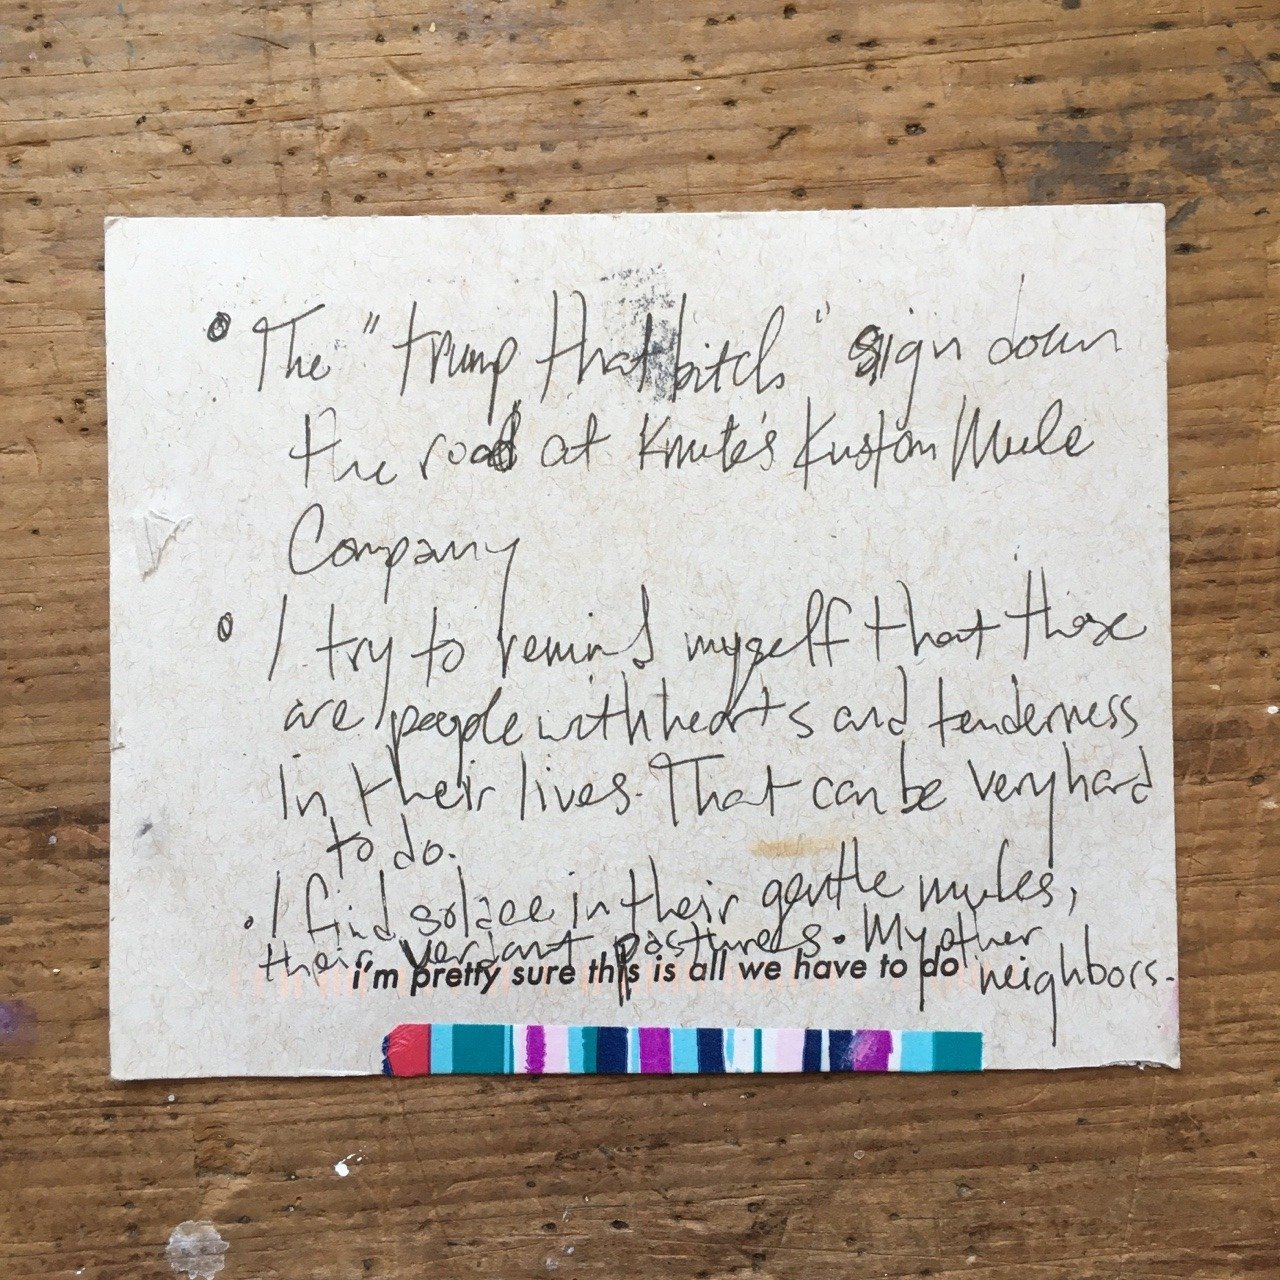 • The "trump that bitch" sign down
the road at Knute's Kustom Mule
Company
• I try to remind myself that those
are people with hearts and tenderness
in their lives. That can be very hard
to do.
• I find solace in their gentle mules,
their verdant pastures. My other
neighbors.
i'm pretty sure this is all we have to do